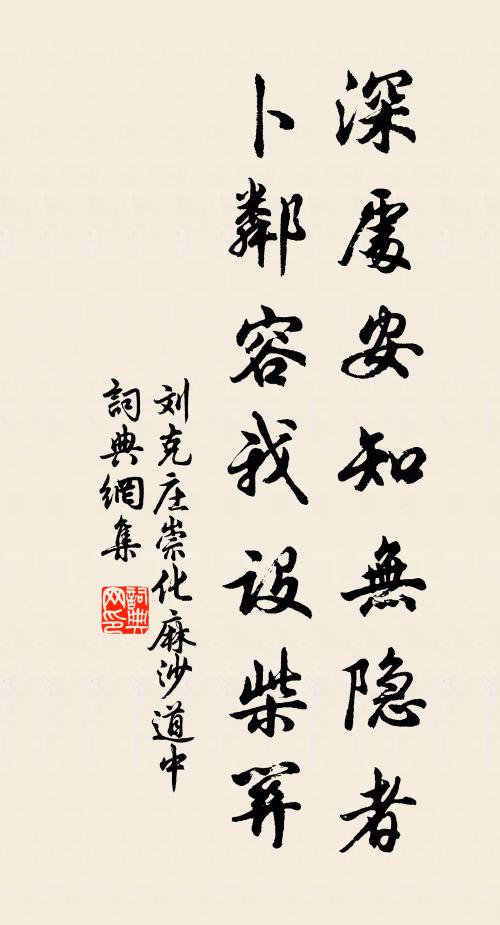 深處安知無隐者
卜鄰容我設柴關
刘克庄崇化麻沙道中
詞典網集
詞典
网印